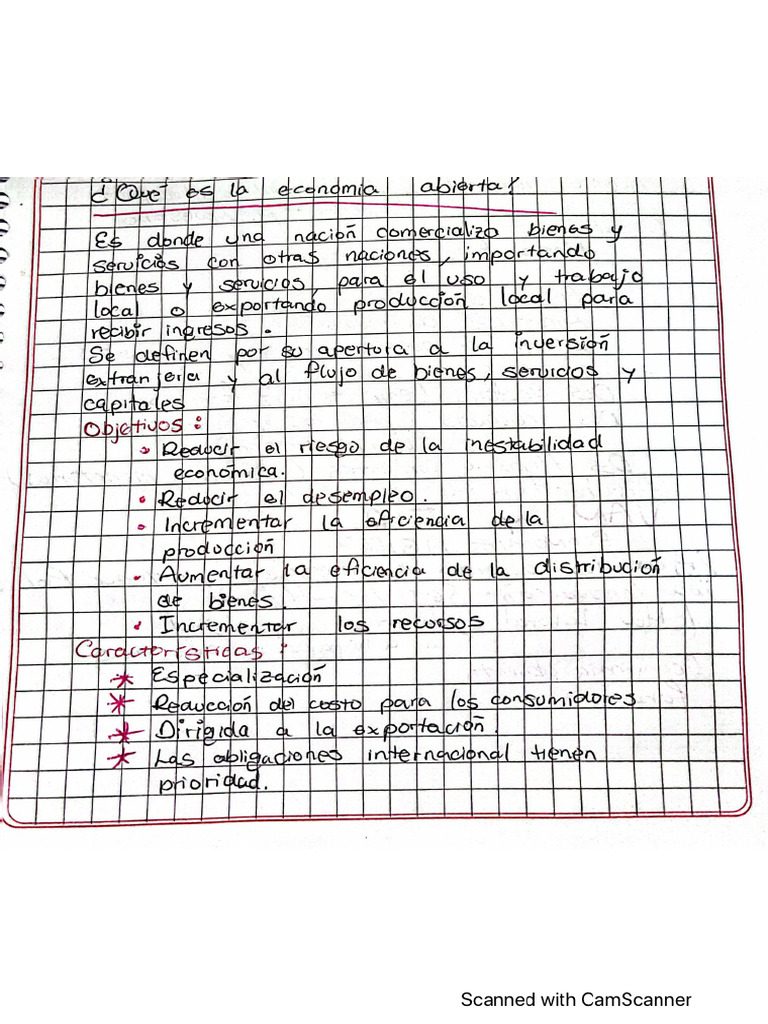 ¿Qué es la economía abierta?
Es donde una nación comercializo bienes y
servicios con otras naciones, importando
bienes y servicios, para el uso y trabajo
local o exportando producción local para
recibir ingresos.
Se definen por su apertura a la inversión
extranjera y al flujo de bienes, servicios y
capitales
Objetivos:
• Reducir el riesgo de la inestabilidad
económica.
• Reducir el desempleo.
• Incrementar la eficiencia de la
producción
• Aumentar la eficiencia de la distribución
de bienes.
• Incrementar los recursos
Características:
* Especialización
* Reducción del costo para los consumidores
* Dirigida a la exportación.
* Las obligaciones internacional tienen
prioridad.
Scanned with CamScanner